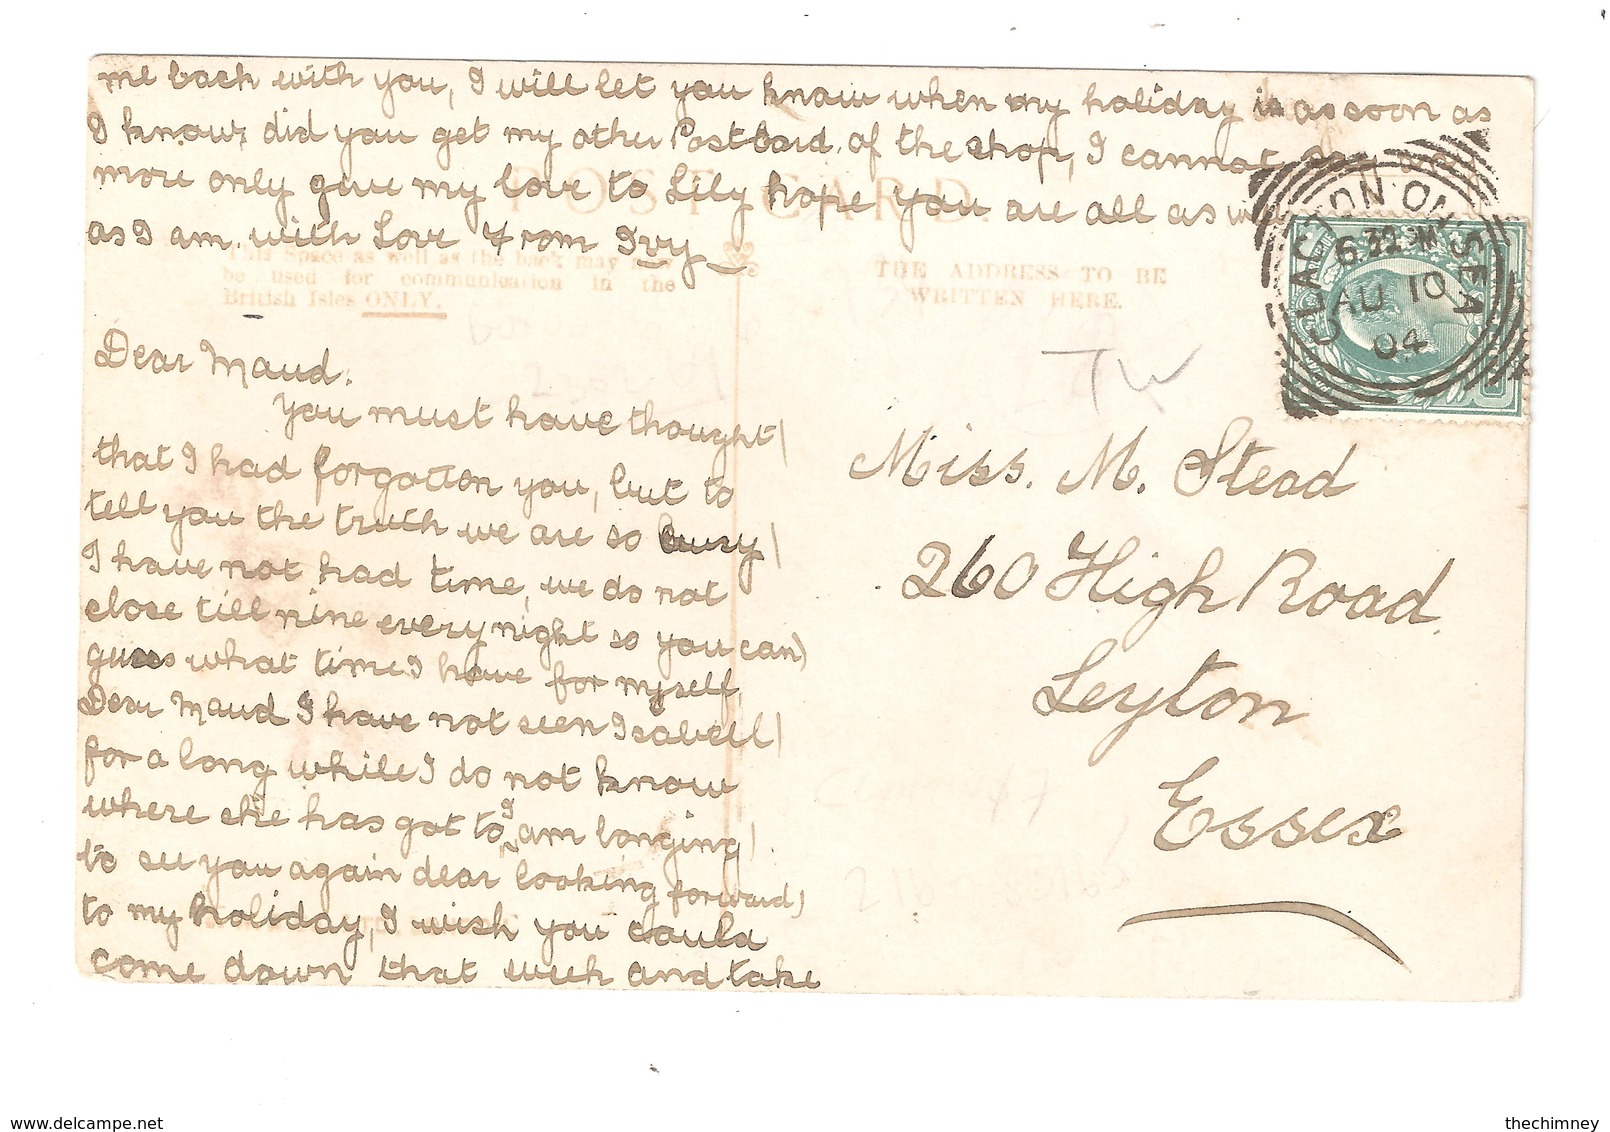 me back with you, I will let you know when my holiday is as soon as
I know, did you get my other Postcard. of the shop, I cannot
more only give my love to Lily hope you are all as
as I am. with Love From Ivy
POST CARD.
This Space as well as the back may now
be used for communication in the
British Isles ONLY.
THE ADDRESS TO BE
WRITTEN HERE.
CLACTON ON SEA
6.32 PM
AU 10
04
Dear Maud.
You must have thought
that I had forgotton you, but to
tell you the truth we are so busy
I have not had time, we do not
close till nine every night so you can
guess what time I have for myself,
Dear Maud I have not seen Isabell
for a long while I do not know
where she has got to, I am longing
to see you again dear looking forward
to my holiday, I wish you could
come down that week and take
Miss. M. Stead
260 High Road
Leyton
Essex
delcampe.net
thechimney